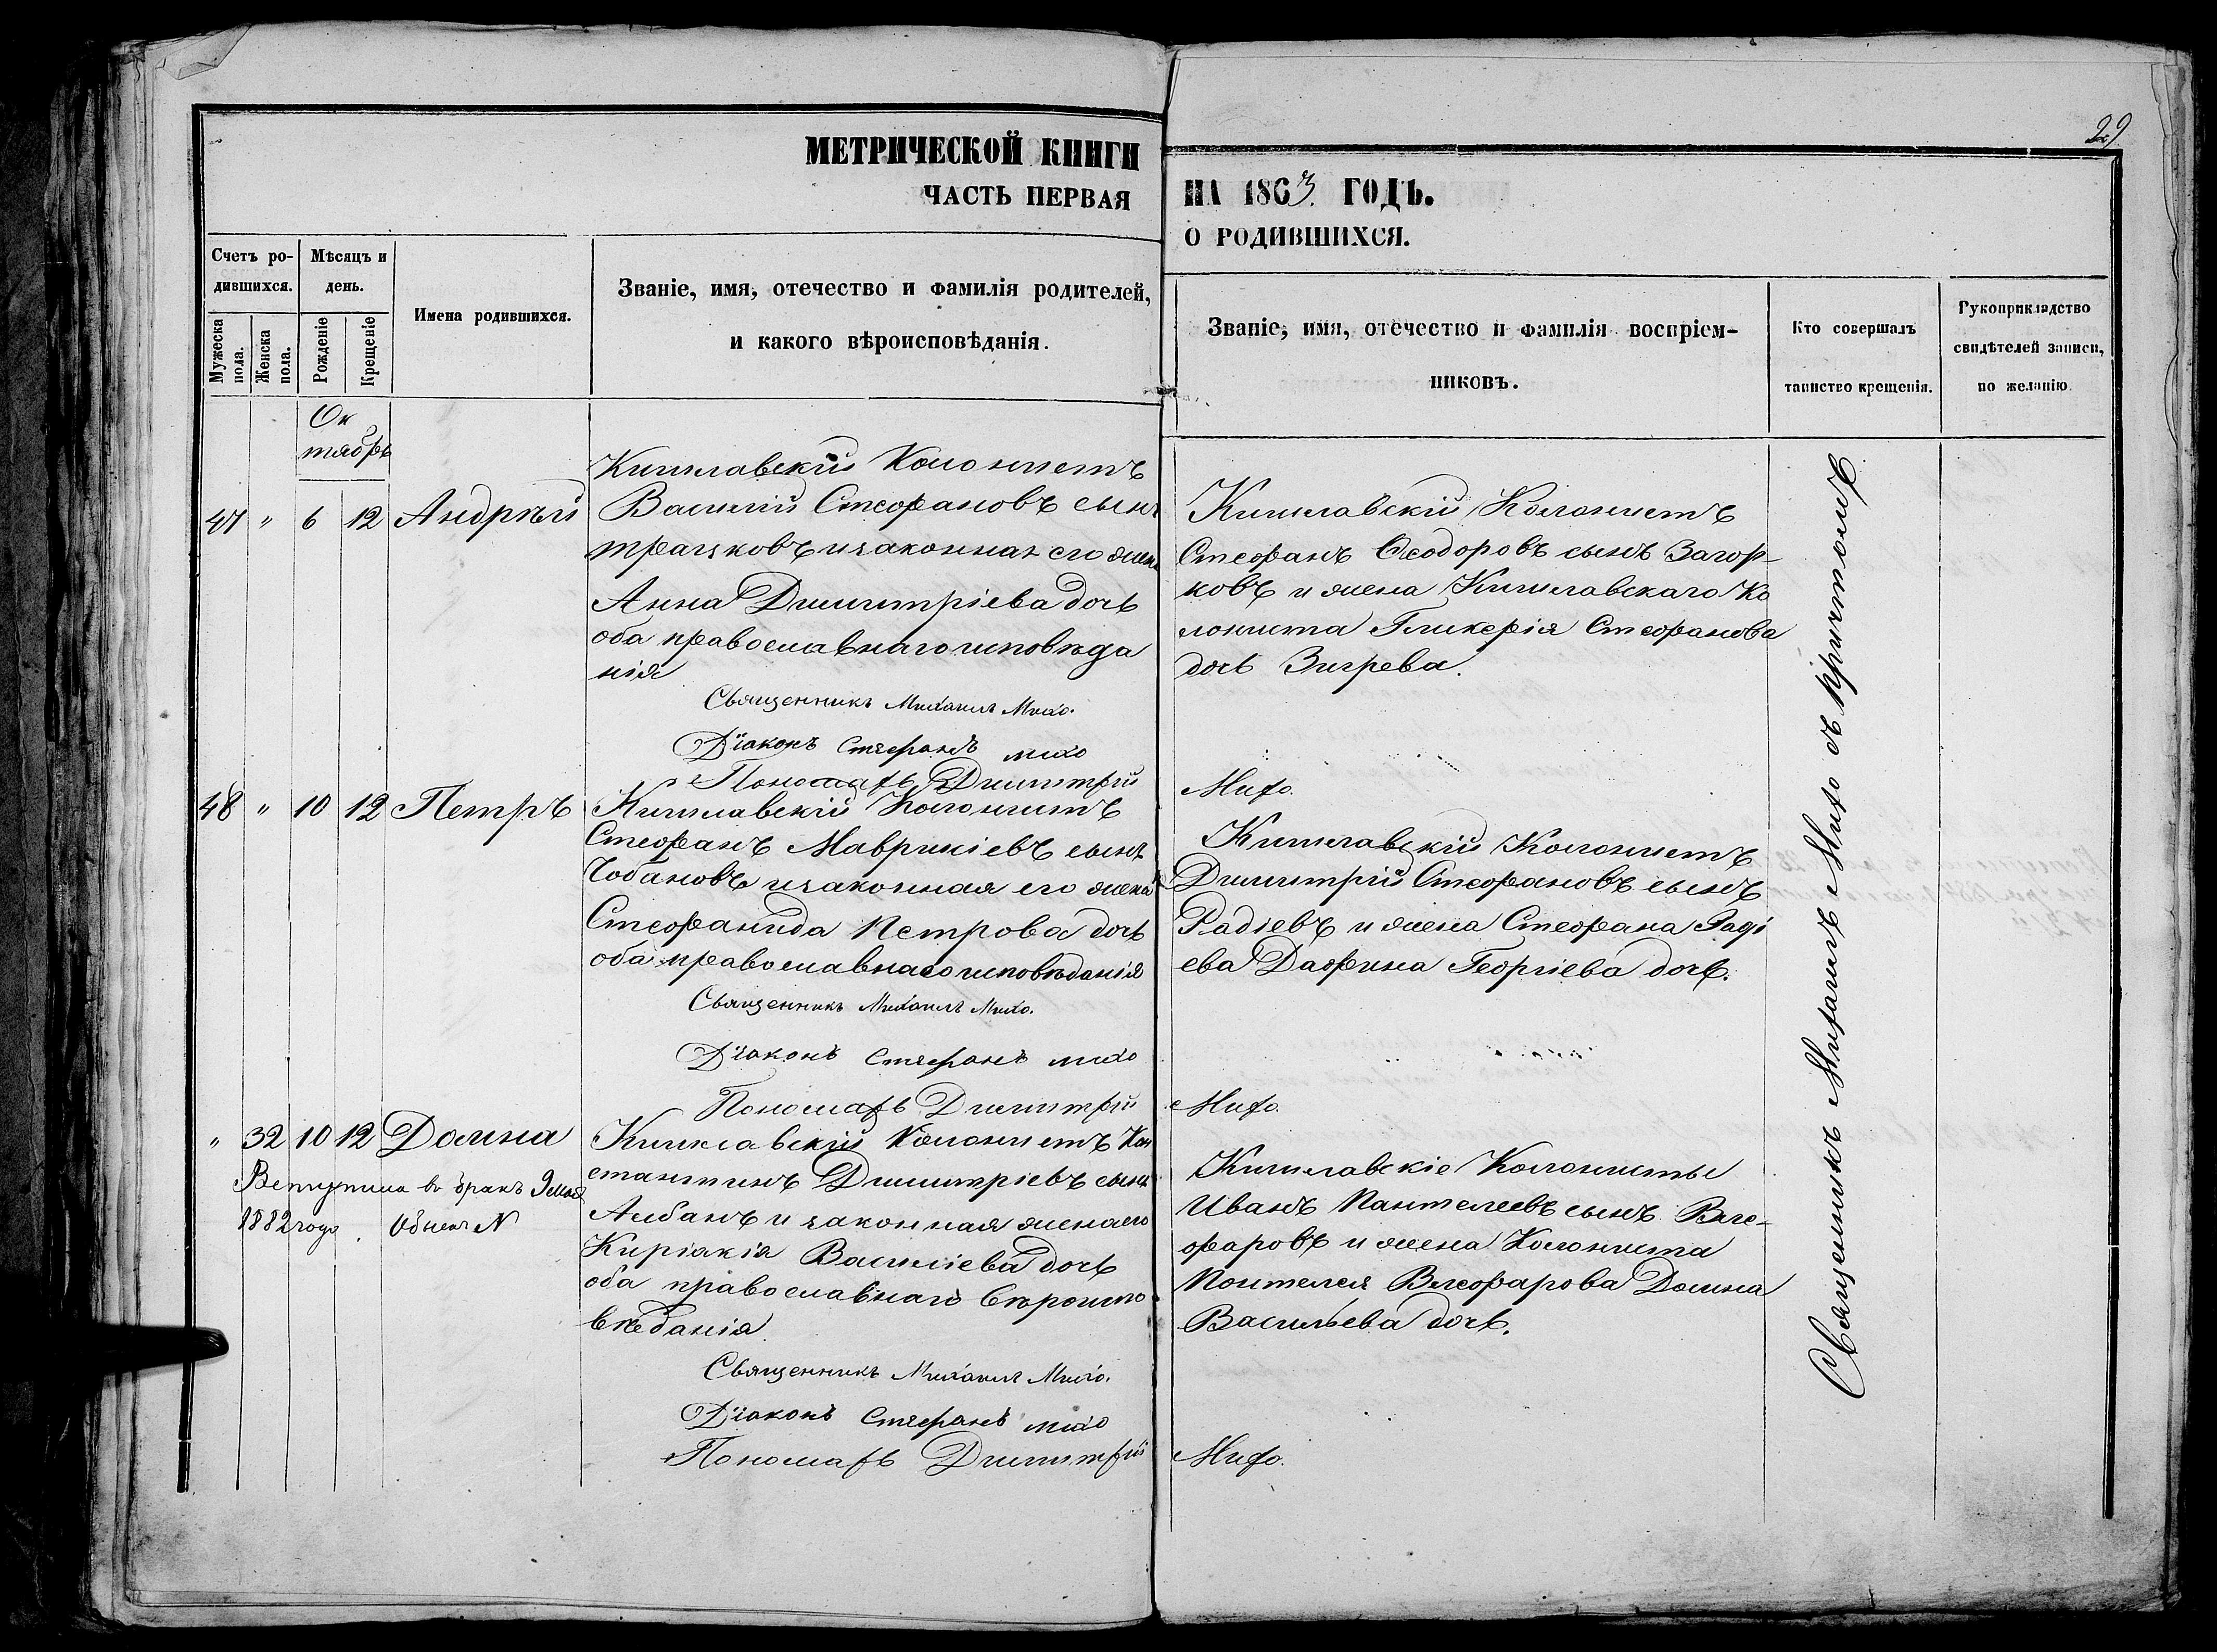 29
МЕТРИЧЕСКОЙ КНИГИ
ЧАСТЬ ПЕРВАЯ
НА 1863 ГОДЪ.
О РОДИВШИХСЯ.
Счетъ ро-
дившихся.
Мужеска пола.
Женска пола.
Мѣсяцъ и
день.
Рожденіе
Крещеніе
Имена родившихся.
Званіе, имя, отечество и фамилія родителей,
и какого вѣроисповѣданія.
Званіе, имя, отечество и фамилія воспріем-
никовъ.
Кто совершалъ
таинство крещенія.
Рукоприкладство
свидѣтелей записи,
по желанію
Ок
тябрь
47 " 6 12 Андрѣй
Кишлавскій Колонистъ
Василій Стеофановъ сынъ
законная его жена
Анна Димитріева дочь
оба православнаго исповѣда
нія
Священникъ Михаилъ Михо.
Діаконъ Стефанъ михо
Пономарь Димитрій Михо.
Кишлавскій Колонистъ
Стеофанъ Феодоровъ сынъ Загор-
ковъ и жена Кишлавскаго Ко
лониста Гликерія Стеофанова
дочь Зигрева.
48 " 10 12 Петръ
Кишлавскій Колонистъ
Стеофанъ Маврикіевъ сынъ
Чобановъ и законная его жена
Стеофанида Петрова дочь
оба православнаго исповѣданія
Священникъ Михаилъ Михо.
Діаконъ Стефанъ михо
Пономарь Димитрій Михо.
Кишлавскій Колонистъ
Димитрій Стеофановъ сынъ
Радіевъ и жена Стеофана Раді
ева Дафина Георгіева дочь.
" 32 10 12 Домна
Вступила въ бракъ
1882 года. Обыск N
Кишлавскій Колонистъ Кон
стантинъ Димитріевъ сынъ
Албанъ и законная жена его
Киріакія Василіева дочь
оба православнаго вѣроиспо
вѣданія.
Священникъ Михаилъ Михо.
Діаконъ Стефанъ михо
Пономарь Димитрій Михо.
Кишлавскіе Колонисты
Иванъ Пантелеевъ сынъ
и жена Колониста
Домна
Васильева дочь.
Священникъ Михаилъ Михо съ причтомъ